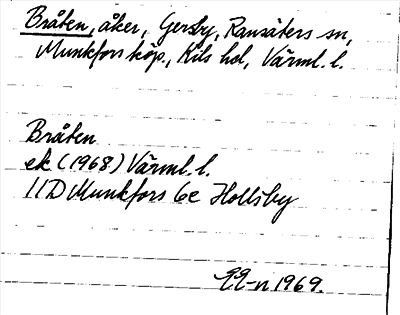 Bråten, åker, Gersby, Ransäters sn,
Munkfors köp., Kils hd, Värml. l.
Bråten
ek (1968) Värml. l.
11D Munkfors 6e Hollsby
1969.